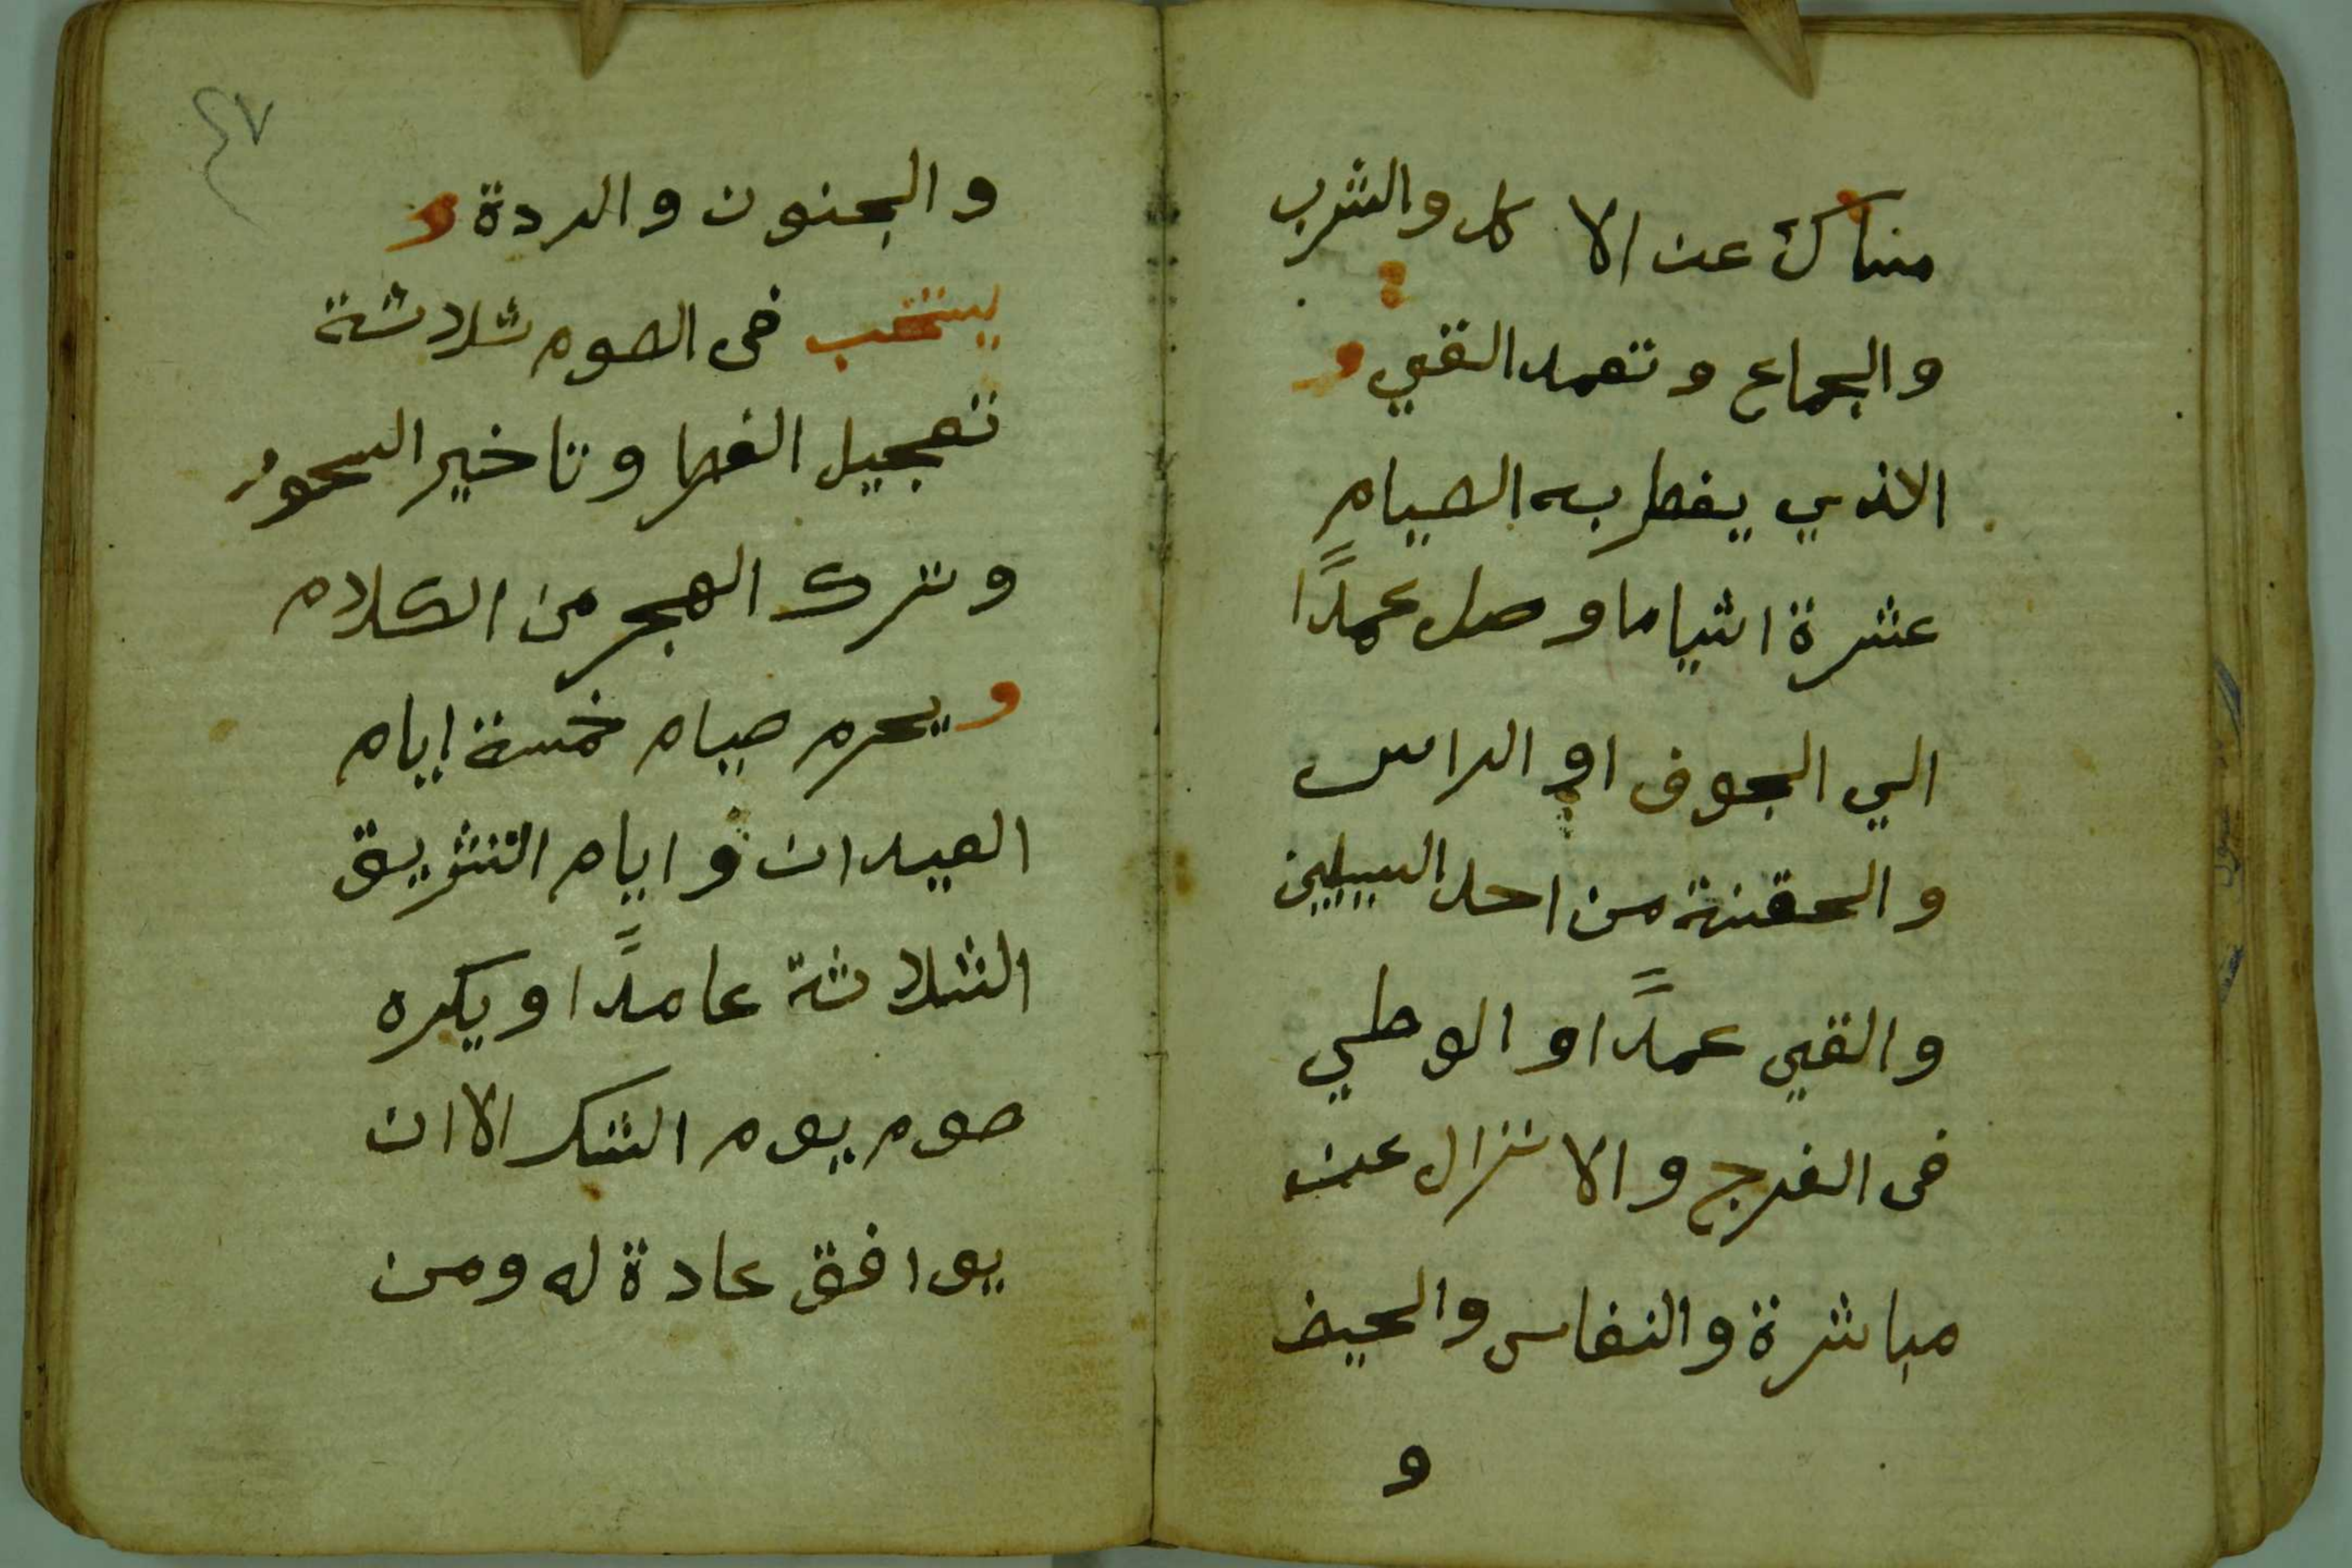 منساك عن الاكل والشرب
والجماع وتعمد القي و
الاذي يفطر به الصيام
عشرة اشيا ما وصل عمدًا
الي الجوف او الراس
والحقنة من احد السبيلين
والقي عمدًا و الوطي
فى الفرج والانزال عن
مباشرة والنفاس والحيض
و
٤٧
والجنون والردة و
يستحب فى الصوم ثلاثة
تعجيل الفطر وتاخير السحور
وترك الهجر من الكلام
ويحرم صيام خمسة ايام
العيدان و ايام التشريق
الثلاثة عامدًا ويكره
صوم يوم الشك الا ان
يوافق عادة له ومن